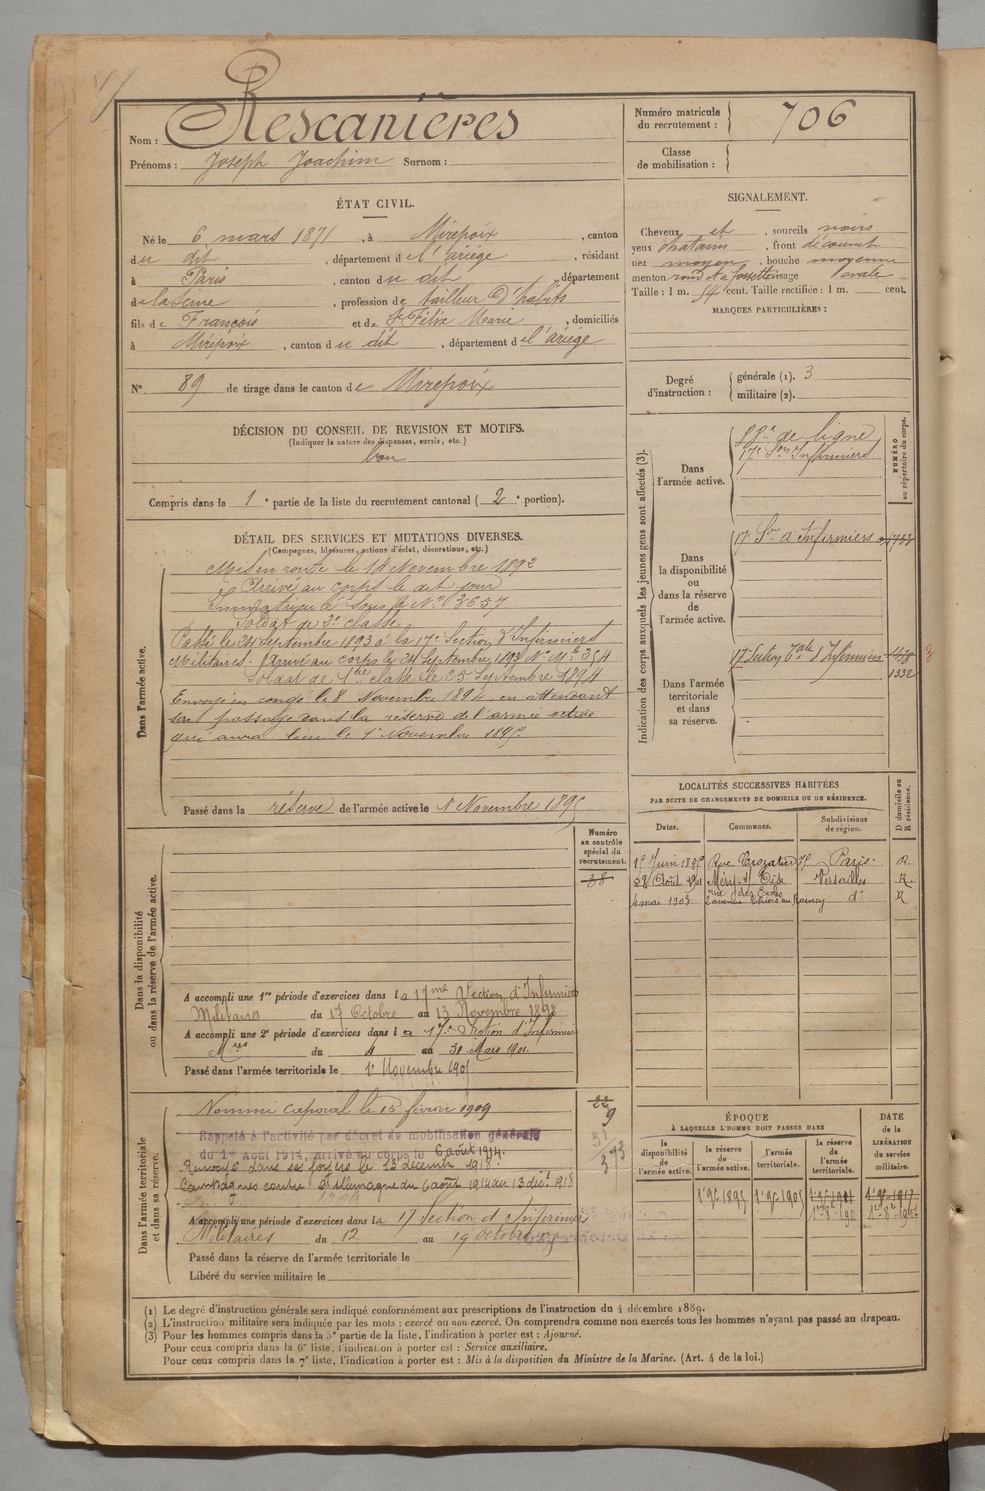 Nom : Rescanières
Prénoms : Joseph Joachim Surnom :
Numéro matricule du recrutement : 706
Classe de mobilisation :
ÉTAT CIVIL.
Né le 6 mars 1871, à Mirepoix, canton
du dit, département de l'Ariège, résidant
à Paris, canton du dit, département
de la Seine, profession de tailleur d'habits
fils de François et de St Félix Marie, domiciliés
à Mirepoix, canton du dit, département de l'ariège
N° 89 de tirage dans le canton de Mirepoix
DÉCISION DU CONSEIL DE REVISION ET MOTIFS.
(Indiquer la nature des dispenses, sursis, etc.)
bon
Compris dans la 1e partie de la liste du recrutement cantonal (2e portion).
SIGNALEMENT.
Cheveux et, sourcils noirs
yeux chatains, front découvert
nez moyen, bouche moyenne
menton rond et à fossette visage ovale
Taille : 1 m. 54 cent. Taille rectifiée : 1 m. cent.
MARQUES PARTICULIÈRES :
Degré d'instruction : générale (1). 3
militaire (2).
DÉTAIL DES SERVICES ET MUTATIONS DIVERSES.
(Campagnes, blessures, actions d'éclat, décorations, etc.)
Dans l'armée active.
Mis en route le 14 Novembre 1892
Arrivé au corps le dit jour
Immatriculé sous le N° 3657
Soldat de 2e classe
Passé le 24 Septembre 1893 à la 17e Section d'Infirmiers
Militaires. Arrivé au corps le 24 Septembre 1893 N° Mle 354
Soldat de 1ère classe le 25 Septembre 1894
Envoyé en congé le 8 Novembre 1894 en attendant
son passage dans la réserve de l'armée active
qui aura lieu le 1er Novembre 1895
Passé dans la réserve de l'armée active le 1 Novembre 1895
Indication des corps auxquels les jeunes gens sont affectés (3).
NUMÉRO au répertoire du corps.
Dans l'armée active.
de ligne
17e Son Infirmiers
Dans la disponibilité ou dans la réserve de l'armée active.
17e Son d'Infirmiers
Dans l'armée territoriale et dans sa réserve.
17e Section Tale d'Infirmiers
1332
LOCALITÉS SUCCESSIVES HABITÉES
PAR SUITE DE CHANGEMENTS DE DOMICILE OU DE RÉSIDENCE.
Dates. Communes. Subdivisions de région. D domicile ou R résidence.
1er Juin 1895 Rue Crozatier 75 Paris R
28 Août 1901 Méry s/ Oise rue des Ecoles Versailles R
4 mai 1903 2 avenue Thiers au Raincy do R
Dans la disponibilité ou dans la réserve de l'armée active.
Numéro au contrôle spécial du recrutement.
38
A accompli une 1re période d'exercices dans la 17me Section d'Infirmiers
Militaires du 17 Octobre au 13 Novembre 1898
A accompli une 2e période d'exercices dans la 17e Section d'Infirmiers
Mres du 4 au 31 Mars 1901
Passé dans l'armée territoriale le 1er Novembre 1905
Dans l'armée territoriale et dans sa réserve.
Nommé caporal le 15 février 1909
Rappelé à l'activité par décret de mobilisation générale
du 1er Août 1914, arrivé au corps le 6 août 1914.
Renvoyé dans ses foyers le 13 décembre 1918.
Campagnes contre l'Allemagne du 6 août 1914 au 13 déc. 1918
9
A accompli une période d'exercices dans la 17 Section d'Infirmiers
Militaires du 12 au 19 octobre
Passé dans la réserve de l'armée territoriale le
Libéré du service militaire le
ÉPOQUE
À LAQUELLE L'HOMME DOIT PASSER DANS
la disponibilité de l'armée active. la réserve de l'armée active. l'armée territoriale. la réserve de l'armée territoriale.
DATE de la LIBÉRATION du service militaire.
1er 9e 1895 1er 9e 1905 1er 9e 1911 1er 9e 1917
(1) Le degré d'instruction générale sera indiqué conformément aux prescriptions de l'instruction du 4 décembre 1889.
(2) L'instruction militaire sera indiquée par les mots : exercé ou non exercé. On comprendra comme non exercés tous les hommes n'ayant pas passé au drapeau.
(3) Pour les hommes compris dans la 5e partie de la liste, l'indication à porter est : Ajourné.
Pour ceux compris dans la 6e liste, l'indication à porter est : Service auxiliaire.
Pour ceux compris dans la 7e liste, l'indication à porter est : Mis à la disposition du Ministre de la Marine. (Art. 4 de la loi.)